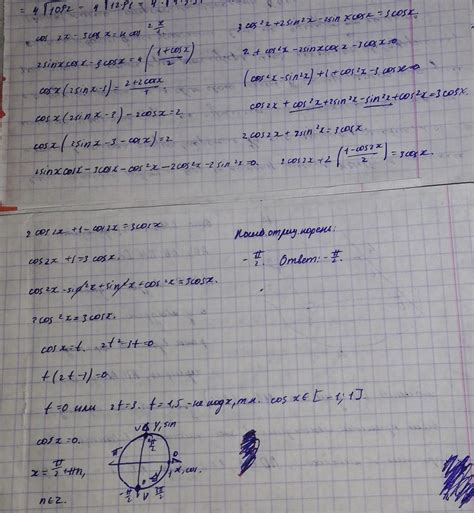 cos 2x - 3cosx = 4cos² x/2
2sinxcosx - 3cosx = 4(1+cosx/2)
cosx(2sinx-3) = 2+2cosx
cosx(2sinx-3) - 2cosx = 2
cosx(2sinx - 3 - cosx) = 2
2sinxcosx - 3cosx - cos²x - 2cos²x - 2sin²x = 0.
3cos²x + 2sin²x - 2sinxcosx = 3cosx.
2 + cos²x - 2sinxcosx - 3cosx = 0
(cos²x - sin²x) + 1 + cos²x - 3cosx = 0
cos2x + cos²x + 2sin²x - sin²x + cos²x = 3cosx.
2cos2x + 2sin²x = 3cosx.
2cos2x + 2(1-cos2x/2) = 3cosx.
2cos2x + 1 - cos2x = 3cosx
cos2x + 1 = 3cosx.
cos²x - sin²x + sin²x + cos²x = 3cosx.
2cos²x = 3cosx.
cosx = t. 2t² - 3t = 0
t(2t-3) = 0.
t = 0 или 2t = 3. t = 1,5 - не подх, т.к. cosx ∈ [-1; 1]
cosx = 0.
x = π/2 + πn,
n ∈ Z.
y, sin
π
π/2
0
x, cos.
-π/2
3π/2
Наиб. отриц. корень:
-π/2. Ответ: -π/2.